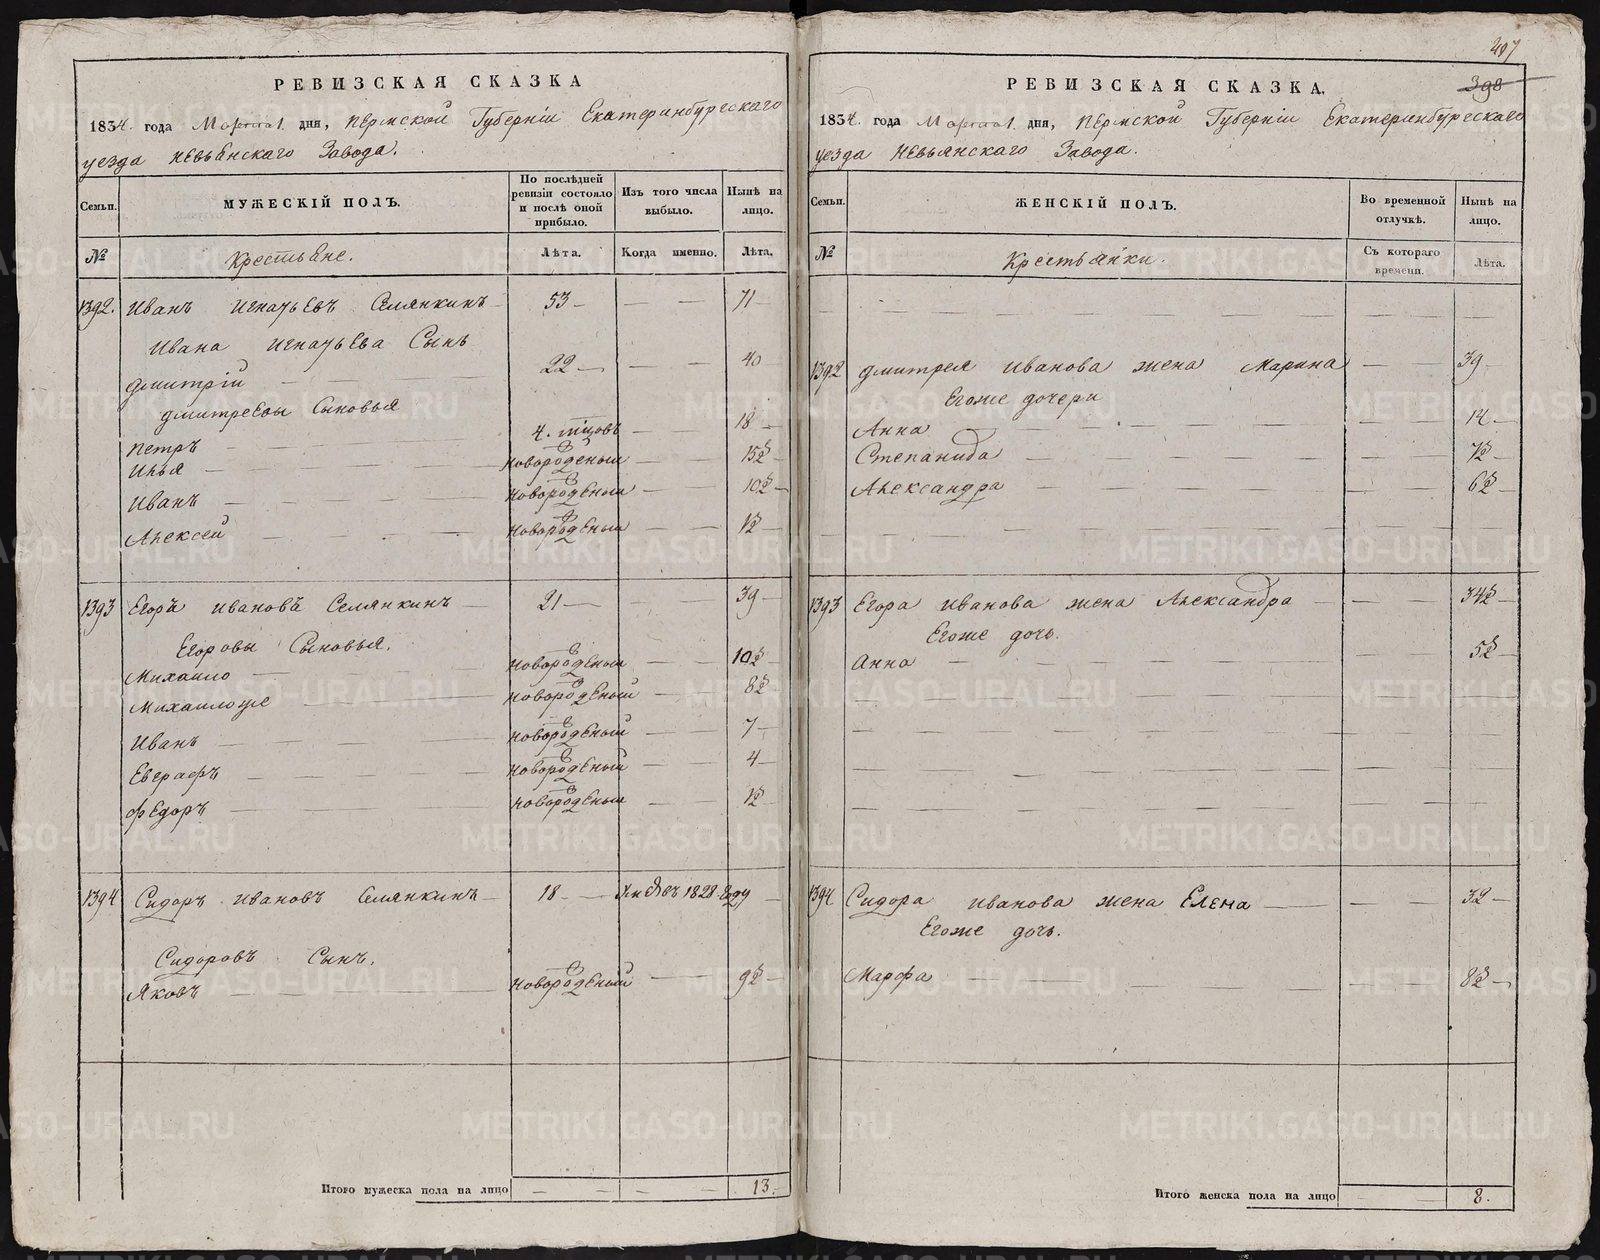 РЕВИЗСКАЯ СКАЗКА
1834. года Марта 1. дня, Пермской Губернїи Екатеринбургскаго
уезда Невьянскаго Завода.
Семьи.
МУЖЕСКІЙ ПОЛЪ.
По послѣдней ревизіи состояло и послѣ оной прибыло.
Изъ того числа выбыло.
Нынѣ на лицо.
№
Крестьяне.
Лѣта.
Когда именно.
Лѣта.
1392. Иванъ Игнатьевъ Селянкинъ 53 — — — 71
Ивана Игнатьева Сынъ
Дмитрїй — — 22 — — — 40
Дмитревы Сыновья
Петръ — 4. мцовъ — — 18
Илья — Новорођеный — — 15½
Иванъ — Новорођеный — — 10½
Алексей — Новорођеный — — 1½
1393 Егоръ Ивановъ Селянкинъ — 21 — — — 39
Егоровы Сыновья.
Михаило — Новорођеный — — 10½
Михаиложе — Новорођеный — — 8½
Иванъ — Новорођеный — — 7
Евграфъ — Новорођеный — — 4
Федоръ — Новорођеный — — 1½
1394 Сидоръ Ивановъ Селянкинъ — 18 — 1828 году
Сидоровъ Сынъ.
Яковъ — Новорођеный — — 9½
Итого мужеска пола на лицо — — 13.
407
398
РЕВИЗСКАЯ СКАЗКА.
1834. года Марта 1. дня, Пермской Губернїи Екатеринбургскаго
уезда Невьянскаго Завода.
Семьи.
ЖЕНСКІЙ ПОЛЪ.
Во временной отлучкѣ.
Нынѣ на лицо.
№
Крестьянки.
Съ котораго времени.
Лѣта.
1392 Дмитрея Иванова жена Марина — — 39
Егоже дочери
Анна — — 14
Степанида — — 7½
Александра — — 6½
1393 Егора Иванова жена Александра — — 34½
Егоже дочь.
Анна — — 5½
1394 Сидора Иванова жена Елена — — 32
Егоже дочь.
Марфа — — 8½
Итого женска пола на лицо — — 8.
METRIKI.GASO-URAL.RU